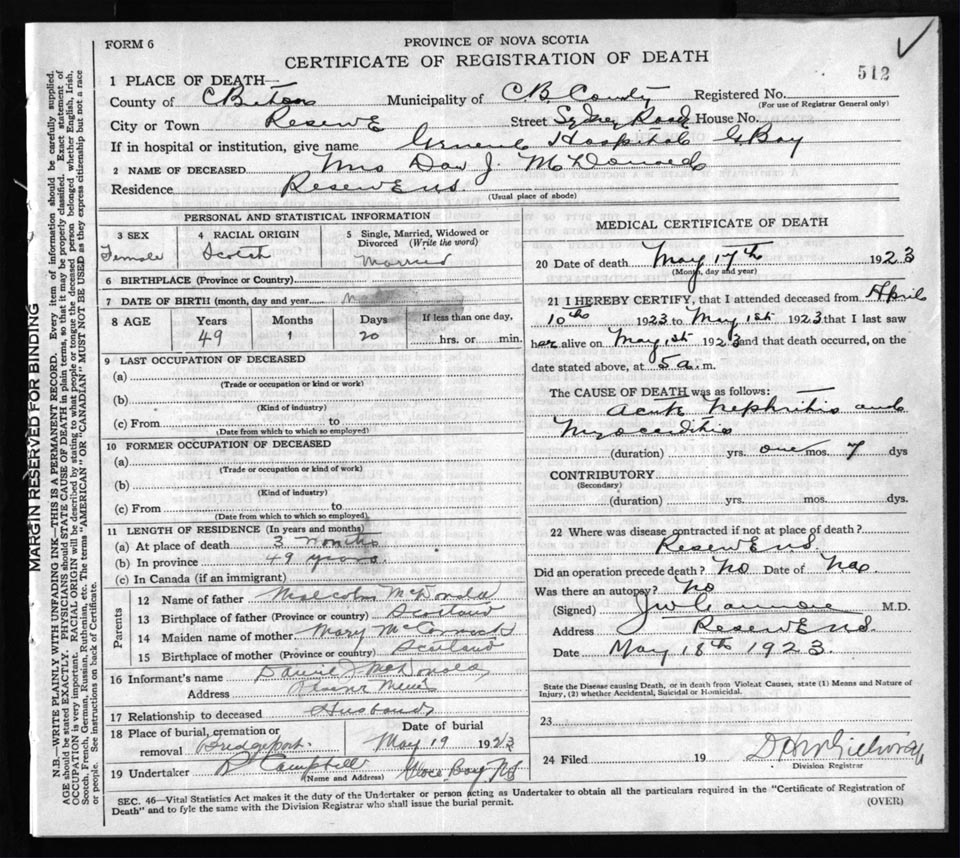 FORM 6
PROVINCE OF NOVA SCOTIA
CERTIFICATE OF REGISTRATION OF DEATH
512
1 PLACE OF DEATH—
County of C Breton Municipality of C.B. County Registered No.
(For use of Registrar General only)
City or Town Reserve Street Sydney Road House No.
If in hospital or institution, give name General Hospital G Bay
2 NAME OF DECEASED Mrs Dan J. McDonald
Residence Reserve NS.
(Usual place of abode)
MARGIN RESERVED FOR BINDING
N.B.—WRITE PLAINLY WITH UNFADING INK—THIS IS A PERMANENT RECORD. Every item of information should be carefully supplied.
AGE should be stated EXACTLY. PHYSICIANS should STATE CAUSE OF DEATH in plain terms, so that it may be properly classified. Exact statement of
OCCUPATION is very important. RACIAL ORIGIN will be described by stating to what people or tongue the deceased person belonged whether English, Irish,
Scotch, French, German, Russian, Ruthenian, etc. The terms "AMERICAN" OR "CANADIAN" MUST NOT BE USED as they express citizenship but not a race
or people. See instructions on back of Certificate.
PERSONAL AND STATISTICAL INFORMATION
3 SEX
Female
4 RACIAL ORIGIN
Scotch
5 Single, Married, Widowed or
Divorced (Write the word)
Married
6 BIRTHPLACE (Province or Country)
7 DATE OF BIRTH (month, day and year)
8 AGE Years Months Days If less than one day,
49 1 20 hrs. or min.
9 LAST OCCUPATION OF DECEASED
(a)
(Trade or occupation or kind or work)
(b)
(Kind of industry)
(c) From to
(Date from which to which so employed)
10 FORMER OCCUPATION OF DECEASED
(a)
(Trade or occupation or kind of work)
(b)
(Kind of industry)
(c) From to
(Date from which to which so employed)
11 LENGTH OF RESIDENCE (In years and months)
(a) At place of death 3 months
(b) In province 49 years
(c) In Canada (if an immigrant)
Parents
12 Name of father Malcolm McDonald
13 Birthplace of father (Province or country) Scotland
14 Maiden name of mother Mary McCormick
15 Birthplace of mother (Province or country) Scotland
16 Informant's name Daniel J McDonald
Address
17 Relationship to deceased Husband
18 Place of burial, cremation or
removal Bridgeport.
Date of burial
May 19 1923
19 Undertaker Campbell Glace Bay NS
(Name and Address)
MEDICAL CERTIFICATE OF DEATH
20 Date of death May 17th 1923
(Month, day and year)
21 I HEREBY CERTIFY, that I attended deceased from April
10th 1923 to May 1st 1923 that I last saw
her alive on May 1st 1923 and that death occurred, on the
date stated above, at 5 a.m.
The CAUSE OF DEATH was as follows:
Acute Nephritis and
Myocarditis
(duration) yrs. one mos. 7 dys
CONTRIBUTORY
(Secondary)
(duration) yrs. mos. dys.
22 Where was disease contracted if not at place of death?
Reserve NS
Did an operation precede death? No Date of
Was there an autopsy? No
(Signed) M.D.
Address Reserve NS.
Date May 18th 1923.
State the Disease causing Death, or in death from Violent Causes, state (1) Means and Nature of
Injury, (2) whether Accidental, Suicidal or Homicidal.
23
24 Filed 19
Division Registrar
SEC. 46—Vital Statistics Act makes it the duty of the Undertaker or person acting as Undertaker to obtain all the particulars required in the "Certificate of Registration of
Death" and to fyle the same with the Division Registrar who shall issue the burial permit.
(OVER)